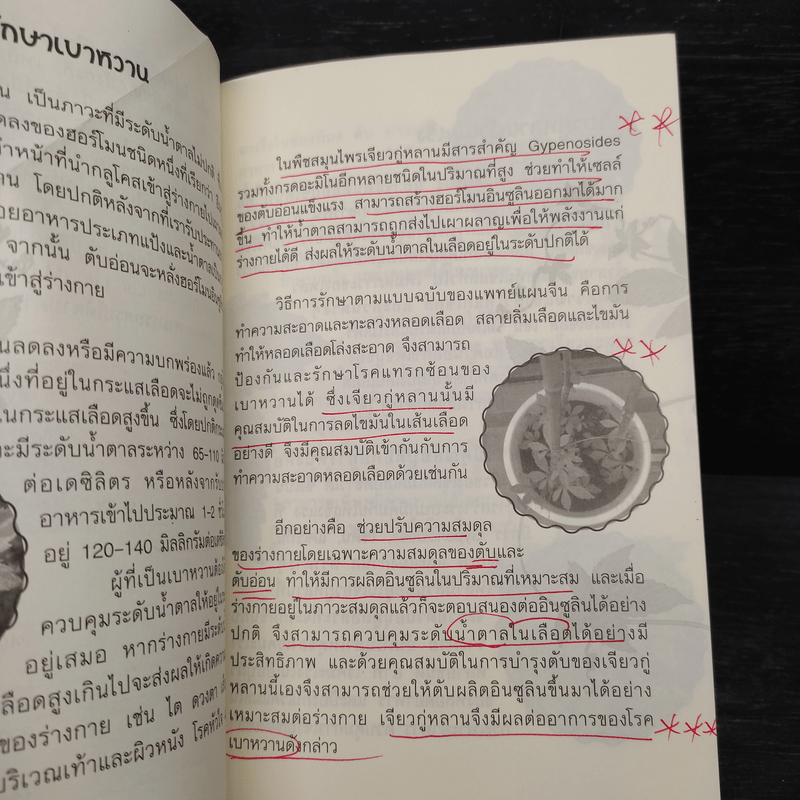 รักษาเบาหวาน
น เป็นภาวะที่มีระดับน้ำตาลไม่ปกติ
ลดลงของฮอร์โมนชนิดหนึ่งที่เรียกว่า
ทำหน้าที่นำกลูโคสเข้าสู่ร่างกาย
าน โดยปกติหลังจากที่เรารับประทาน
ยอาหารประเภทแป้งและน้ำตาล
จากนั้น ตับอ่อนจะหลั่งฮอร์โมน
ข้าสู่ร่างกาย
นลดลงหรือมีความบกพร่องแล้ว
นึ่งที่อยู่ในกระแสเลือดจะไม่ถูก
ในกระแสเลือดสูงขึ้น ซึ่งโดยปกติ
ะมีระดับน้ำตาลระหว่าง 65-110
ต่อเดซิลิตร หรือหลังจาก
อาหารเข้าไปประมาณ 1-2
อยู่ 120-140 มิลลิกรัมต่อ
ผู้ที่เป็นเบาหวาน
ควบคุมระดับน้ำตาลให้อยู่
อยู่เสมอ หากร่างกายมีระดับ
ลือดสูงเกินไปจะส่งผลให้เกิด
ของร่างกาย เช่น ไต ดวงตา
บริเวณเท้าและผิวหนัง โรคหัวใจ
ในพืชสมุนไพรเจียวกู่หลานมีสารสำคัญ Gypenosides
รวมทั้งกรดอะมิโนอีกหลายชนิดในปริมาณที่สูง ช่วยทำให้เซลล์
ของตับอ่อนแข็งแรง สามารถสร้างฮอร์โมนอินซูลินออกมาได้มาก
ขึ้น ทำให้น้ำตาลสามารถถูกส่งไปเผาผลาญเพื่อให้พลังงานแก่
ร่างกายได้ดี ส่งผลให้ระดับน้ำตาลในเลือดอยู่ในระดับปกติได้
วิธีการรักษาตามแบบฉบับของแพทย์แผนจีน คือการ
ทำความสะอาดและทะลวงหลอดเลือด สลายลิ่มเลือดและไขมัน
ทำให้หลอดเลือดโล่งสะอาด จึงสามารถ
ป้องกันและรักษาโรคแทรกซ้อนของ
เบาหวานได้ ซึ่งเจียวกู่หลานนั้นมี
คุณสมบัติในการลดไขมันในเส้นเลือด
อย่างดี จึงมีคุณสมบัติเข้ากันกับการ
ทำความสะอาดหลอดเลือดด้วยเช่นกัน
อีกอย่างคือ ช่วยปรับความสมดุล
ของร่างกายโดยเฉพาะความสมดุลของตับและ
ตับอ่อน ทำให้มีการผลิตอินซูลินในปริมาณที่เหมาะสม และเมื่อ
ร่างกายอยู่ในภาวะสมดุลแล้วก็จะตอบสนองต่ออินซูลินได้อย่าง
ปกติ จึงสามารถควบคุมระดับน้ำตาลในเลือดได้อย่างมี
ประสิทธิภาพ และด้วยคุณสมบัติในการบำรุงตับของเจียวกู่
หลานนี้เองจึงสามารถช่วยให้ตับผลิตอินซูลินขึ้นมาได้อย่าง
เหมาะสมต่อร่างกาย เจียวกู่หลานจึงมีผลต่ออาการของโรค
เบาหวานดังกล่าว